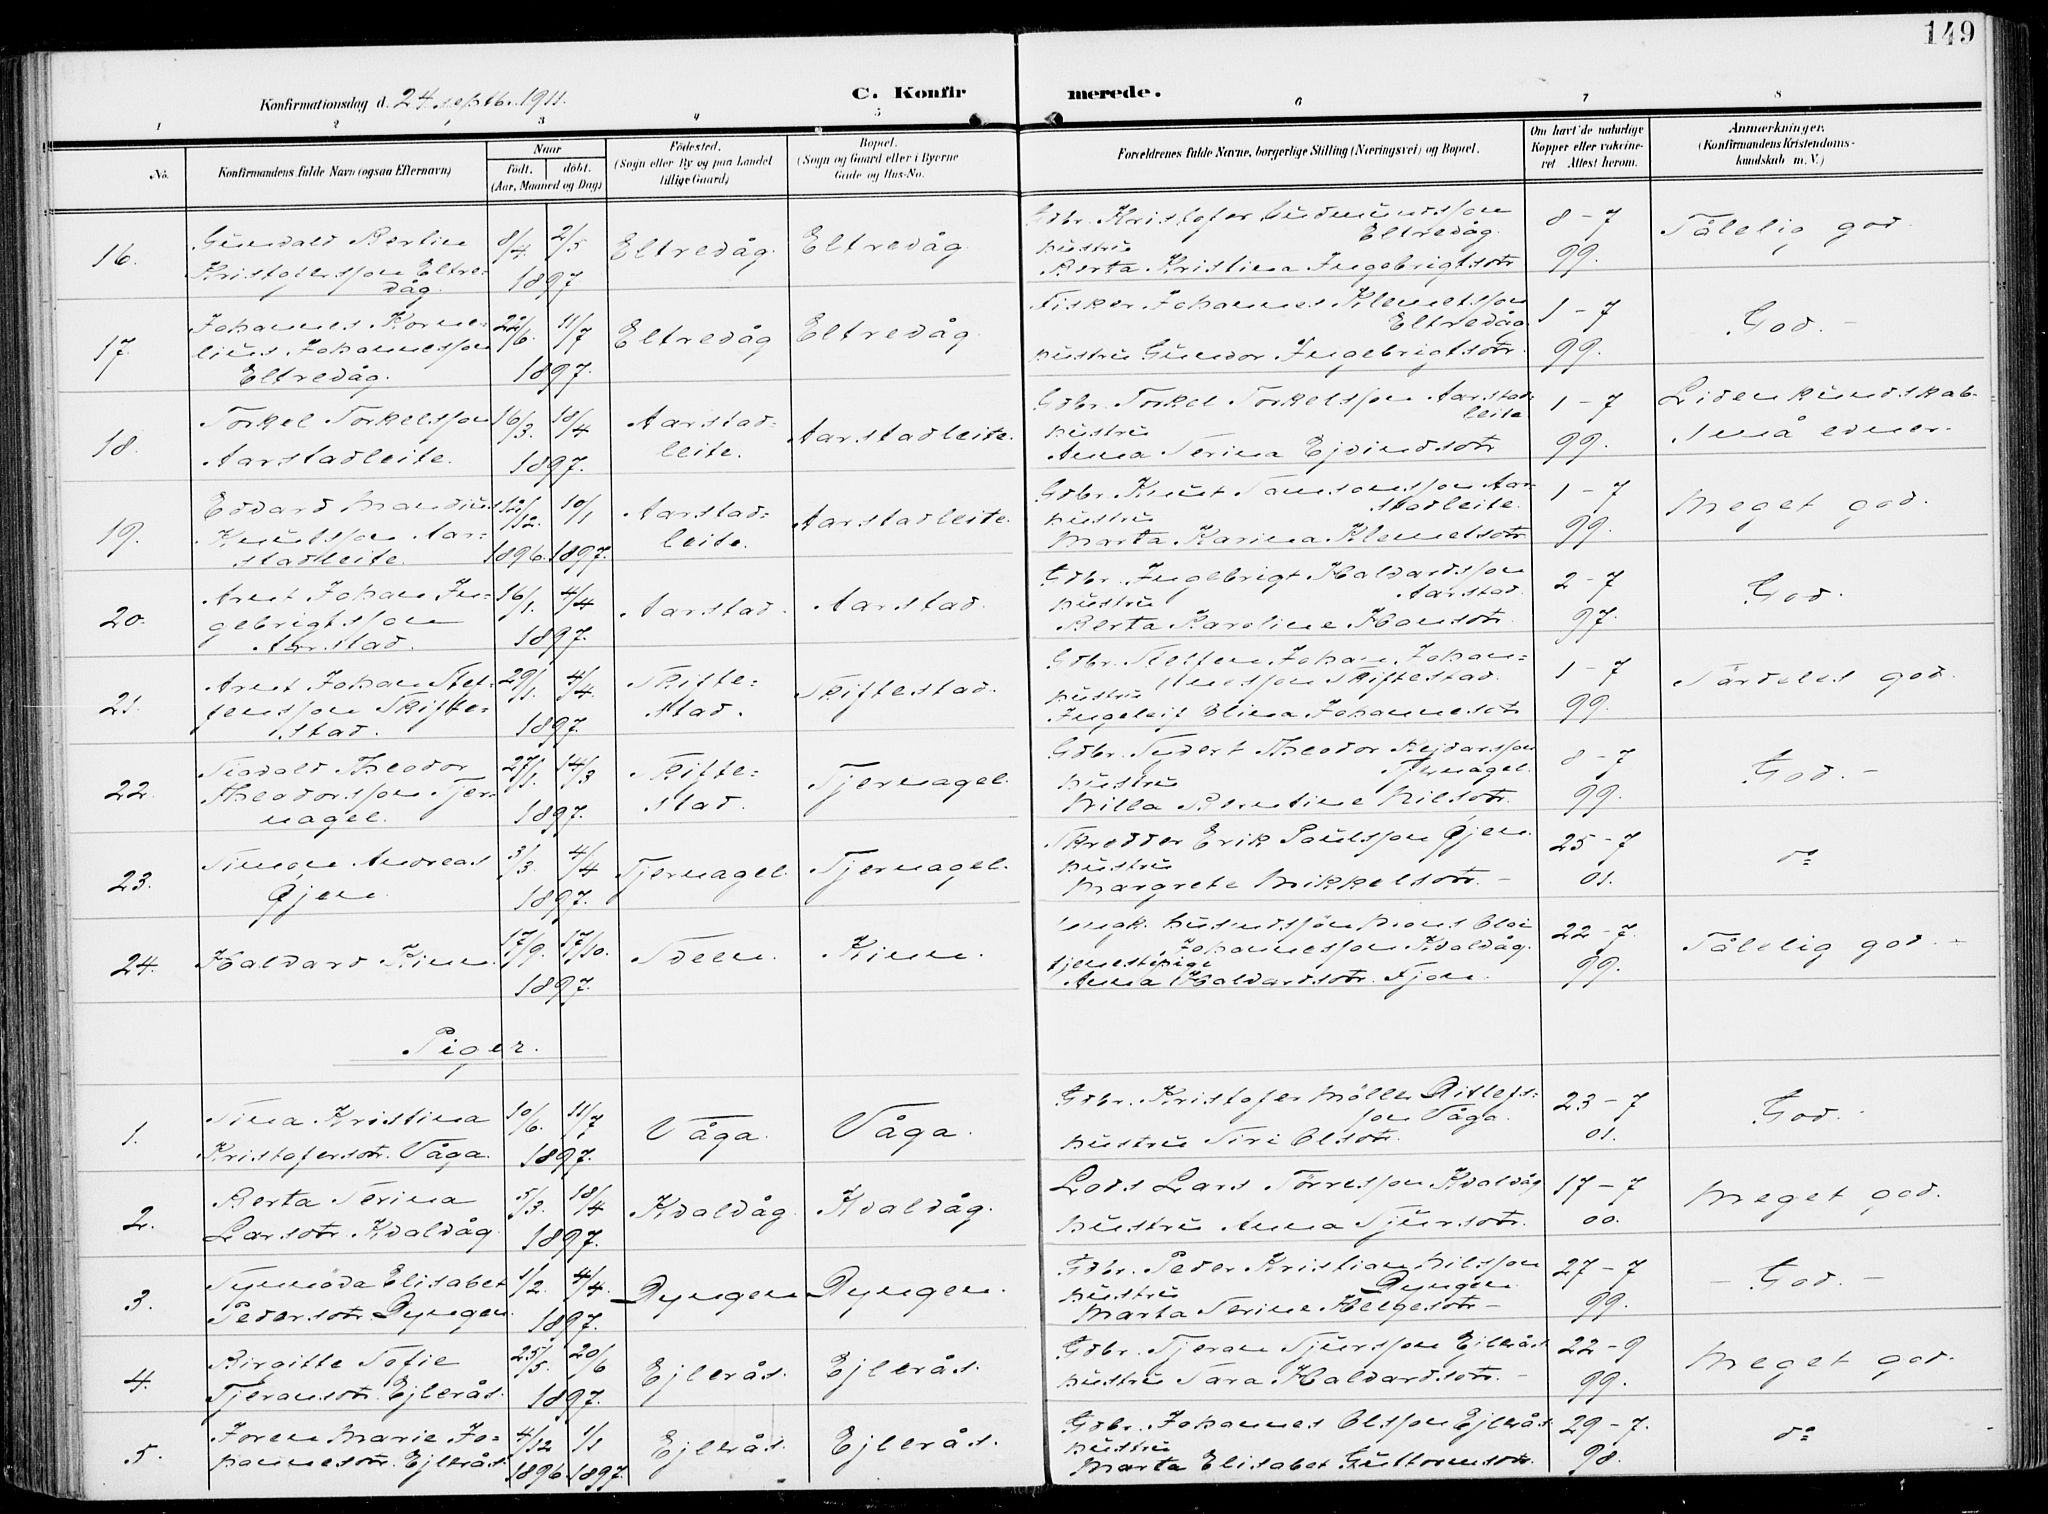 149
Konfirmationsdag d. 24 septb. 1911.
C. Konfirmerede.
1 2 3 4 5 6 7 8
No.
Konfirmandens fulde Navn (ogsaa Efternavn)
Naar
født. døbt.
(Aar, Maaned og Dag)
Fødested.
(Sogn eller By og paa Landet
tillige Gaard)
Bopæl.
(Sogn og Gaard eller i Byerne
Gade og Hus-No.
Forældrenes fulde Navne, borgerlige Stilling (Næringsvei) og Bopæl.
Om havt de naturlige
Kopper eller vakcine-
ret Attest herom.
Anmærkninger.
(Konfirmandens Kristendoms-
kundskab m. V.)
16. Gunvald Berlin
Kristofersson Eltre-
våg. 8/4 2/5 1897. Eltrevåg. Eltrevåg.
Gdbr. Kristofer Gudmundsson
Eltrevåg.
hustru
Berta Kristina Ingebrigtsdtr.
8 - 7
99. Tålelig god.
17. Johannes Korne-
lius Johannesson
Eltrevåg. 22/6. 11/7 1897. Eltrevåg Eltrevåg.
Fisker Johannes Klemetsson
Eltrevåg
hustru Gundor Ingebrigtsdtr.
1 - 7
99. God. -
18. Torkel Torkelsson
Aarstadleite. 16/3. 18/4 1897. Aarstad-
leite. Aarstadleite.
Gdbr. Torkel Torkelsson Aarstad-
leite
hustru
Anna Serina Ejvindsdtr
1 - 7
99. Liden kundskab.
Små evner.
19. Edvard Mandius
Knutsson Aar-
stadleite. 12/12. 10/1 1896. 1897. Aarstad=
leite. Aarstadleite.
Gdbr. Knut Samsonsson Aar-
stadleite.
hustru
Marta Karina Klemetsdtr.
1 - 7
99. Meget god.
20. Arnt Johan In-
gebrigtsson
Aarstad. 16/1. 4/4 1897. Aarstad. Aarstad.
Gdbr. Ingebrigt Halvardsson
Aarstad.
hustru
Berta Karoline Hansdtr.
2 - 7
97. God.
21. Arnt Johan Stef-
fensson Skifte-
stad. 29/1. 4/4 1897. Skifte-
stad. Skiftestad.
Gdbr. Steffen Johan Johan=
nesson Skiftestad.
hustru
Ingeleif Elina Johannesdtr
1 - 7
99. Særdeles god.
22. Theodor
Theodorsson Tjer-
nagel. 27/1. 14/3 1897. Skifte=
stad. Tjernagel.
Gdbr. Theodor Rejdarsson
Tjernagel.
hustru
Milla Berntine Nilsdtr.
8 - 7
99. God. -
23. Simon Andreas
Øjen. 3/3. 4/4 1897. Tjernagel. Tjernagel.
Skredder Erik Paulsson Øjen.
hustru
Margrete Mikkelsdtr. -
25 - 7
01. do
24. Halvard Kinn. 17/9. 17/10. 1897. Sveen. Kinn.
ungk. husmdssøn Mons Olai
Johannesson Kvalvåg.
tjenestpige
Anna Halvardsdtr. Fjon.
22 - 7.
99. Tålelig god. -
Piger.
1. Sina Kristina
Kristofersdtr. Våga. 10/6. 11/7 1897. Våga. Våga.
Gdbr. Kristofer Møller Ditlefs-
son Våga.
hustru Siri Olsdtr.
23 - 7
01. God.
2. Berta Serina
Larsdtr. Kvalvåg 5/3. 18/4 1897. Kvalvåg. Kvalvåg.
Lods Lars Tørresson Kvalvåg
hustru Anna Sjursdtr.
17 - 7
00. Meget god.
3. Synnøva Elisabet
Pedersdtr. Dyngen 1/2. 4/4. 1897. Dyngen Dyngen.
Gdbr. Peder Kristian Nilsson
Dyngen
hustru
Marta Serine Helgesdtr -
27 - 7
99. - God. -
4. Birgitte Sofie
Tjeransdtr. Ejlerås. 25/5. 20/6 1897. Ejlerås. Ejlerås.
Gdbr. Tjeran Sjursson Ejlerås
hustru Sara Halvardsdtr. -
22 - 9
99. Meget god.
5. Joren Marie Jo-
hannesdtr. Ejlerås. 4/12 1/1 1896. 1897. Ejlerås. Ejlerås.
Gdbr. Johannes Olsson Ejlerås
hustru
Marta Elisabet Guttormsdtr.
29 - 7.
98. do